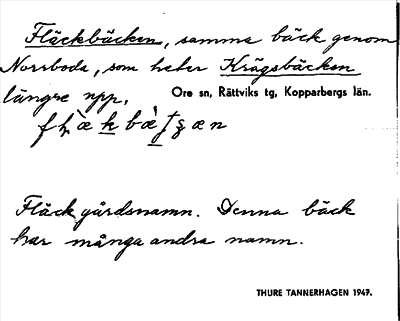 Fläckbäcken, samma bäck genom
Norrboda, som heter Krägsbäcken
längre upp.
Ore sn, Rättviks tg, Kopparbergs län.
Fläck gårdsnamn. Denna bäck
har många andra namn.
THURE TANNERHAGEN 1947.